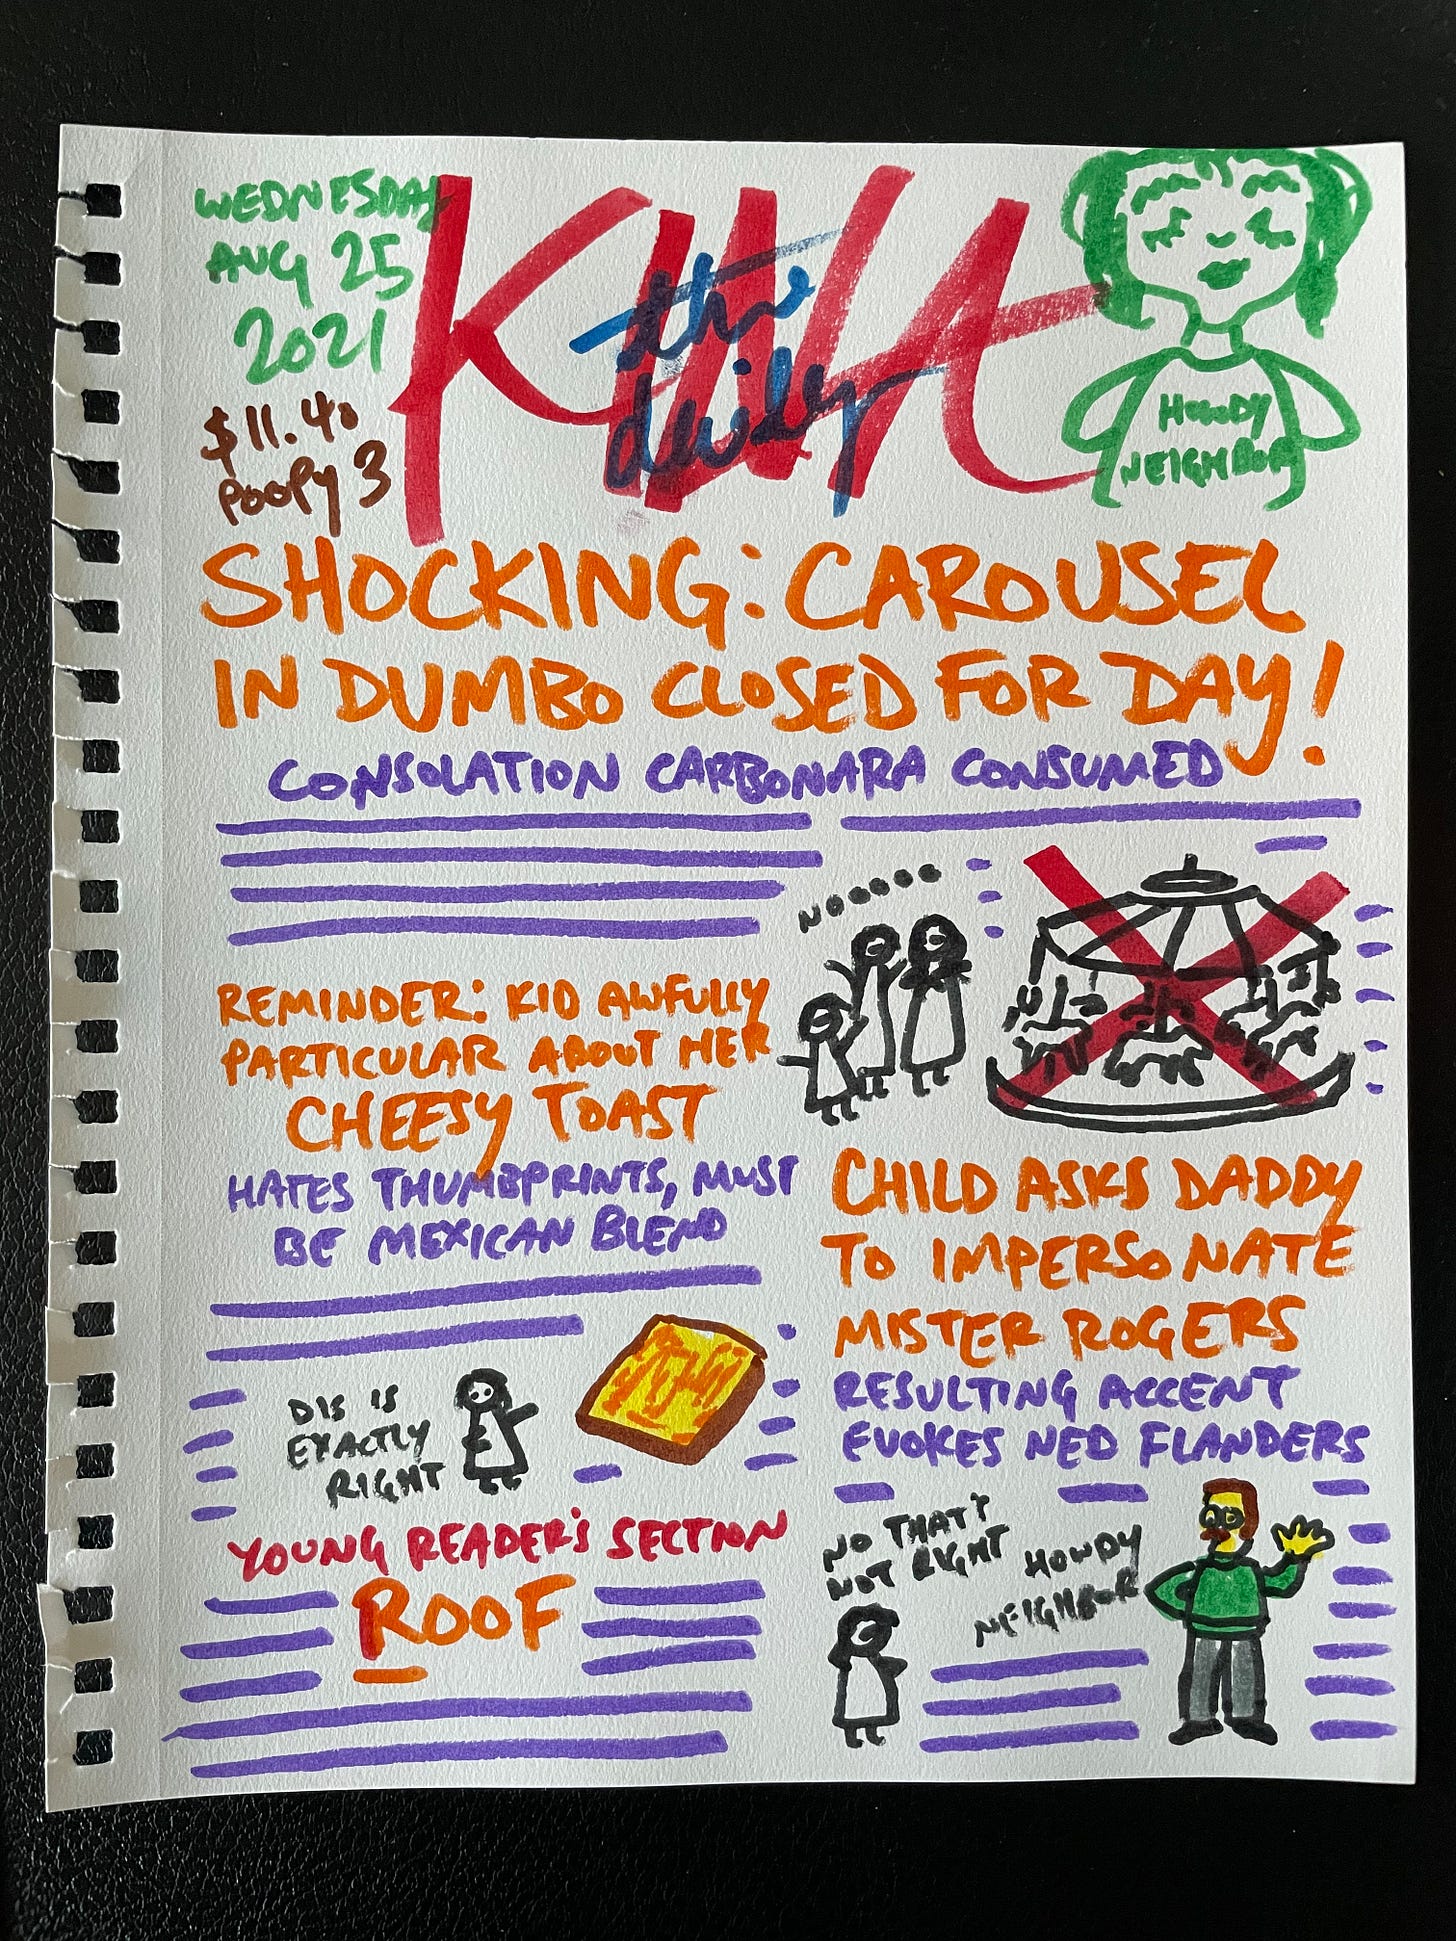 WEDNESDAY
AUG 25
2021
$11.40
POOPY 3
KINA
the
daily
HOWDY
NEIGHBOR
SHOCKING: CAROUSEL
IN DUMBO CLOSED FOR DAY!
CONSOLATION CARBONARA CONSUMED
NOOOOO
REMINDER: KID AWFULLY
PARTICULAR ABOUT HER
CHEESY TOAST
HATES THUMBPRINTS, MUST
BE MEXICAN BLEND
DIS IS
EXACTLY
RIGHT
YOUNG READER'S SECTION
ROOF
CHILD ASKS DADDY
TO IMPERSONATE
MISTER ROGERS
RESULTING ACCENT
EVOKES NED FLANDERS
NO THAT'S
NOT RIGHT
HOWDY
NEIGHBOR